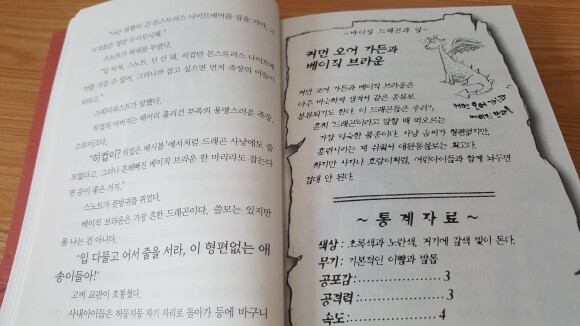 "나는 발톱이 긴 몬스트러스 나이트메어를 잡을 거야. 그
녀석들은 정말 무시무시해."
스노트가 허세를 부렸다.
"입 닥쳐, 스노트, 넌 안 돼. 히컵만 몬스트러스 나이트메
어를 가질 수 있어. 그러니까 잡고 싶으면 먼저 족장의 아들이
되라고."
스피디피스트가 말했다.
히컵의 아버지는 헤어리 훌리건 부족의 용맹스러운 족장,
스토이크다.
"히컵이? 히컵은 배시볼*에서처럼 드래곤 사냥에도 쓸
모없다고. 그러니 흔해빠진 베이직 브라운 한 마리라도 잡는다
면 운이 좋은 거지."
스노트가 콧방귀를 뀌었다.
베이직 브라운은 가장 흔한 드래곤이다. 쓸모는 있지만
폼 나는 건 아니다.
"입 다물고 어서 줄을 서라, 이 형편없는 애
송이들아!"
고버 교관이 호통쳤다.
사내아이들은 허둥지둥 자기 자리로 돌아가 등에 바구니
~바이킹 드래곤과 알~
커먼 오어 가든과
베이직 브라운
커먼 오어 가든과 베이직 브라운은
아주 비슷하게 생겨서 같은 종류로
분류되기도 한다. 이 드래곤들은 우리가
흔히 '드래곤'이라고 말할 때 떠오르는
가장 익숙한 품종이다. 사냥 솜씨가 형편없지만,
훈련시키는 게 쉬워서 애완동물로는 최고다.
하지만 사자나 호랑이처럼, 어린아이들과 함께 놔두면
절대 안 된다.
커먼 오어 가든
베이직 브라운
~ 통계자료 ~
색상 : 초록색과 노란색, 거기에 갈색 빛이 돈다.
무기 : 기본적인 이빨과 발톱
공포감 : 3
공격력 : 3
속도 : 4